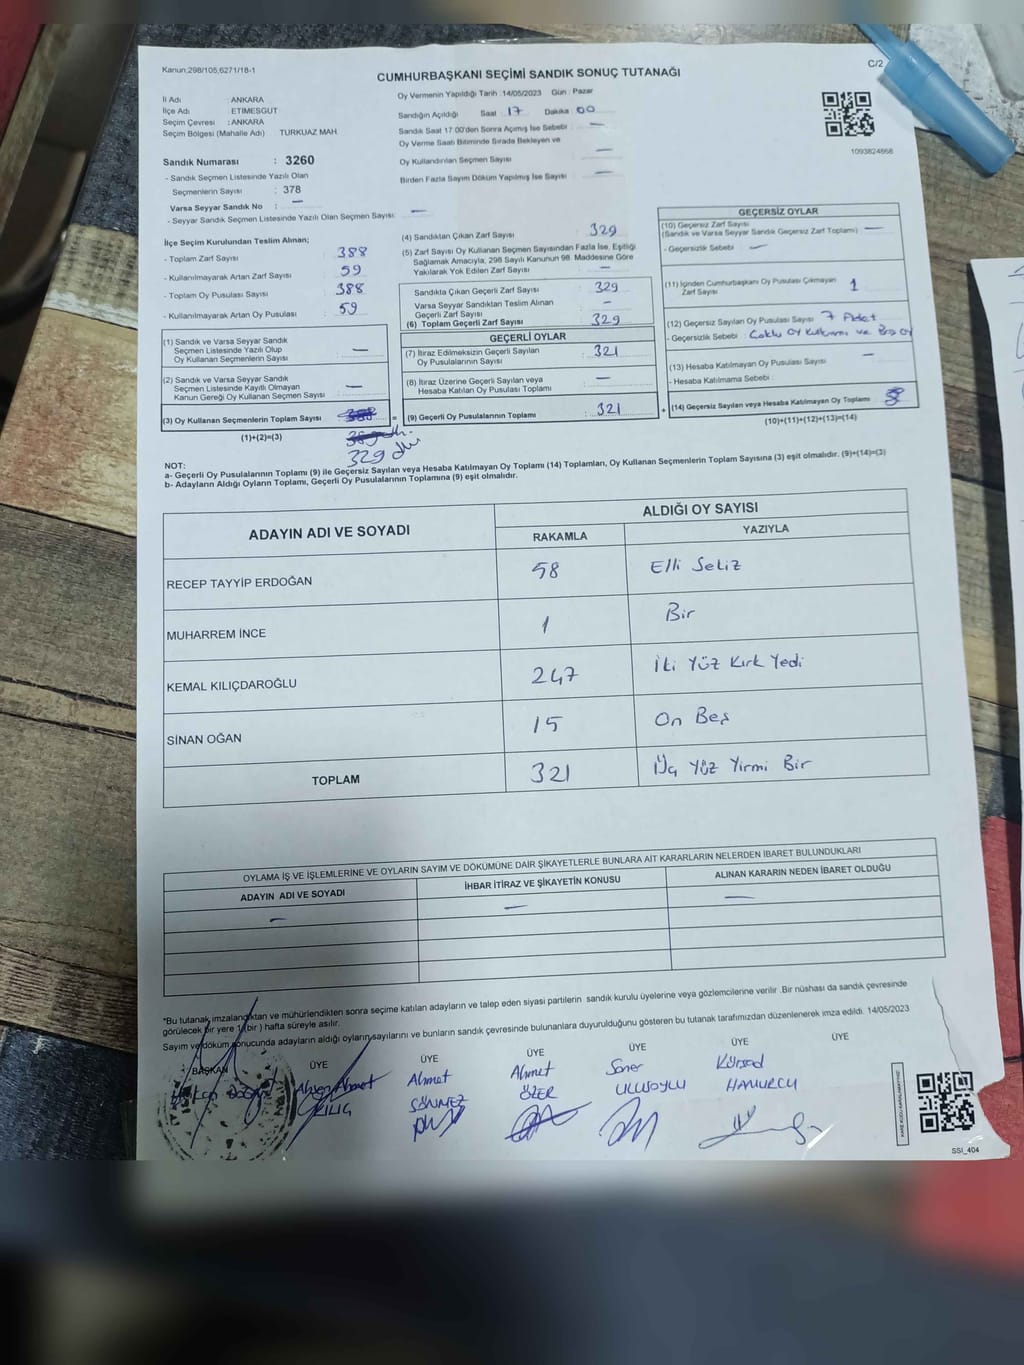 Kanun;298/105,6271/18-1
C/2
CUMHURBAŞKANI SEÇİMİ SANDIK SONUÇ TUTANAĞI
İl Adı : ANKARA
İlçe Adı : ETİMESGUT
Seçim Çevresi : ANKARA
Seçim Bölgesi (Mahalle Adı) TURKUAZ MAH.
Sandık Numarası : 3260
- Sandık Seçmen Listesinde Yazılı Olan
Seçmenlerin Sayısı : 378
Varsa Seyyar Sandık No : —
- Seyyar Sandık Seçmen Listesinde Yazılı Olan Seçmen Sayısı: —
Oy Vermenin Yapıldığı Tarih :14/05/2023 Gün : Pazar
Sandığın Açıldığı Saat : 17 Dakika : 00
Sandık Saat 17.00'den Sonra Açılmış İse Sebebi —
Oy Verme Saati Bitiminde Sırada Bekleyen ve
Oy Kullandırılan Seçmen Sayısı —
Birden Fazla Sayım Döküm Yapılmış İse Sayısı —
1093824668
İlçe Seçim Kurulundan Teslim Alınan;
- Toplam Zarf Sayısı : 388
- Kullanılmayarak Artan Zarf Sayısı : 59
- Toplam Oy Pusulası Sayısı : 388
- Kullanılmayarak Artan Oy Pusulası : 59
(1) Sandık ve Varsa Seyyar Sandık
Seçmen Listesinde Yazılı Olup
Oy Kullanan Seçmenlerin Sayısı : —
(2) Sandık ve Varsa Seyyar Sandık
Seçmen Listesinde Kayıtlı Olmayan
Kanun Gereği Oy Kullanan Seçmen Sayısı : —
(3) Oy Kullanan Seçmenlerin Toplam Sayısı : =
(1)+(2)=(3)
329
(4) Sandıktan Çıkan Zarf Sayısı : 329
(5) Zarf Sayısı Oy Kullanan Seçmen Sayısından Fazla İse, Eşitliği
Sağlamak Amacıyla, 298 Sayılı Kanunun 98. Maddesine Göre
Yakılarak Yok Edilen Zarf Sayısı : —
Sandıkta Çıkan Geçerli Zarf Sayısı : 329
Varsa Seyyar Sandıktan Teslim Alınan
Geçerli Zarf Sayısı : —
(6) Toplam Geçerli Zarf Sayısı : 329
GEÇERLİ OYLAR
(7) İtiraz Edilmeksizin Geçerli Sayılan
Oy Pusulalarının Sayısı : 321
(8) İtiraz Üzerine Geçerli Sayılan veya
Hesaba Katılan Oy Pusulası Toplamı : —
(9) Geçerli Oy Pusulalarının Toplamı : 321 +
GEÇERSİZ OYLAR
(10) Geçersiz Zarf Sayısı
(Sandık ve Varsa Seyyar Sandık Geçersiz Zarf Toplamı) : —
- Geçersizlik Sebebi : —
(11) İçinden Cumhurbaşkanı Oy Pusulası Çıkmayan
Zarf Sayısı : 1
(12) Geçersiz Sayılan Oy Pusulası Sayısı : 7 Adet
- Geçersizlik Sebebi : Çoklu Oy Kullanımı ve Boş oy
(13) Hesaba Katılmayan Oy Pusulası Sayısı : —
- Hesaba Katılmama Sebebi :
(14) Geçersiz Sayılan veya Hesaba Katılmayan Oy Toplamı : 8
(10)+(11)+(12)+(13)=(14)
NOT:
a- Geçerli Oy Pusulalarının Toplamı (9) ile Geçersiz Sayılan veya Hesaba Katılmayan Oy Toplamı (14) Toplamları, Oy Kullanan Seçmenlerin Toplam Sayısına (3) eşit olmalıdır. (9)+(14)=(3)
b- Adayların Aldığı Oyların Toplamı, Geçerli Oy Pusulalarının Toplamına (9) eşit olmalıdır.
ADAYIN ADI VE SOYADI
ALDIĞI OY SAYISI
RAKAMLA YAZIYLA
RECEP TAYYİP ERDOĞAN 58 Elli Sekiz
MUHARREM İNCE 1 Bir
KEMAL KILIÇDAROĞLU 247 İki Yüz Kırk Yedi
SİNAN OĞAN 15 On Beş
TOPLAM 321 Üç Yüz Yirmi Bir
OYLAMA İŞ VE İŞLEMLERİNE VE OYLARIN SAYIM VE DÖKÜMÜNE DAİR ŞİKAYETLERLE BUNLARA AİT KARARLARIN NELERDEN İBARET BULUNDUKLARI
ADAYIN ADI VE SOYADI İHBAR İTİRAZ VE ŞİKAYETİN KONUSU ALINAN KARARIN NEDEN İBARET OLDUĞU
— — —
*Bu tutanak imzalandıktan ve mühürlendikten sonra seçime katılan adayların ve talep eden siyasi partilerin sandık kurulu üyelerine veya gözlemcilerine verilir .Bir nüshası da sandık çevresinde
görülecek bir yere 1(bir ) hafta süreyle asılır.
Sayım ve döküm sonucunda adayların aldığı oyların sayılarını ve bunların sandık çevresinde bulunanlara duyurulduğunu gösteren bu tutanak tarafımızdan düzenlenerek imza edildi. 14/05/2023
BAŞKAN ÜYE ÜYE ÜYE ÜYE ÜYE ÜYE
Ahmet Ahmet Soner Kürşad
KILIÇ SÖNMEZ ÖZER ULUSOYLU HAMURCU
SSI_404